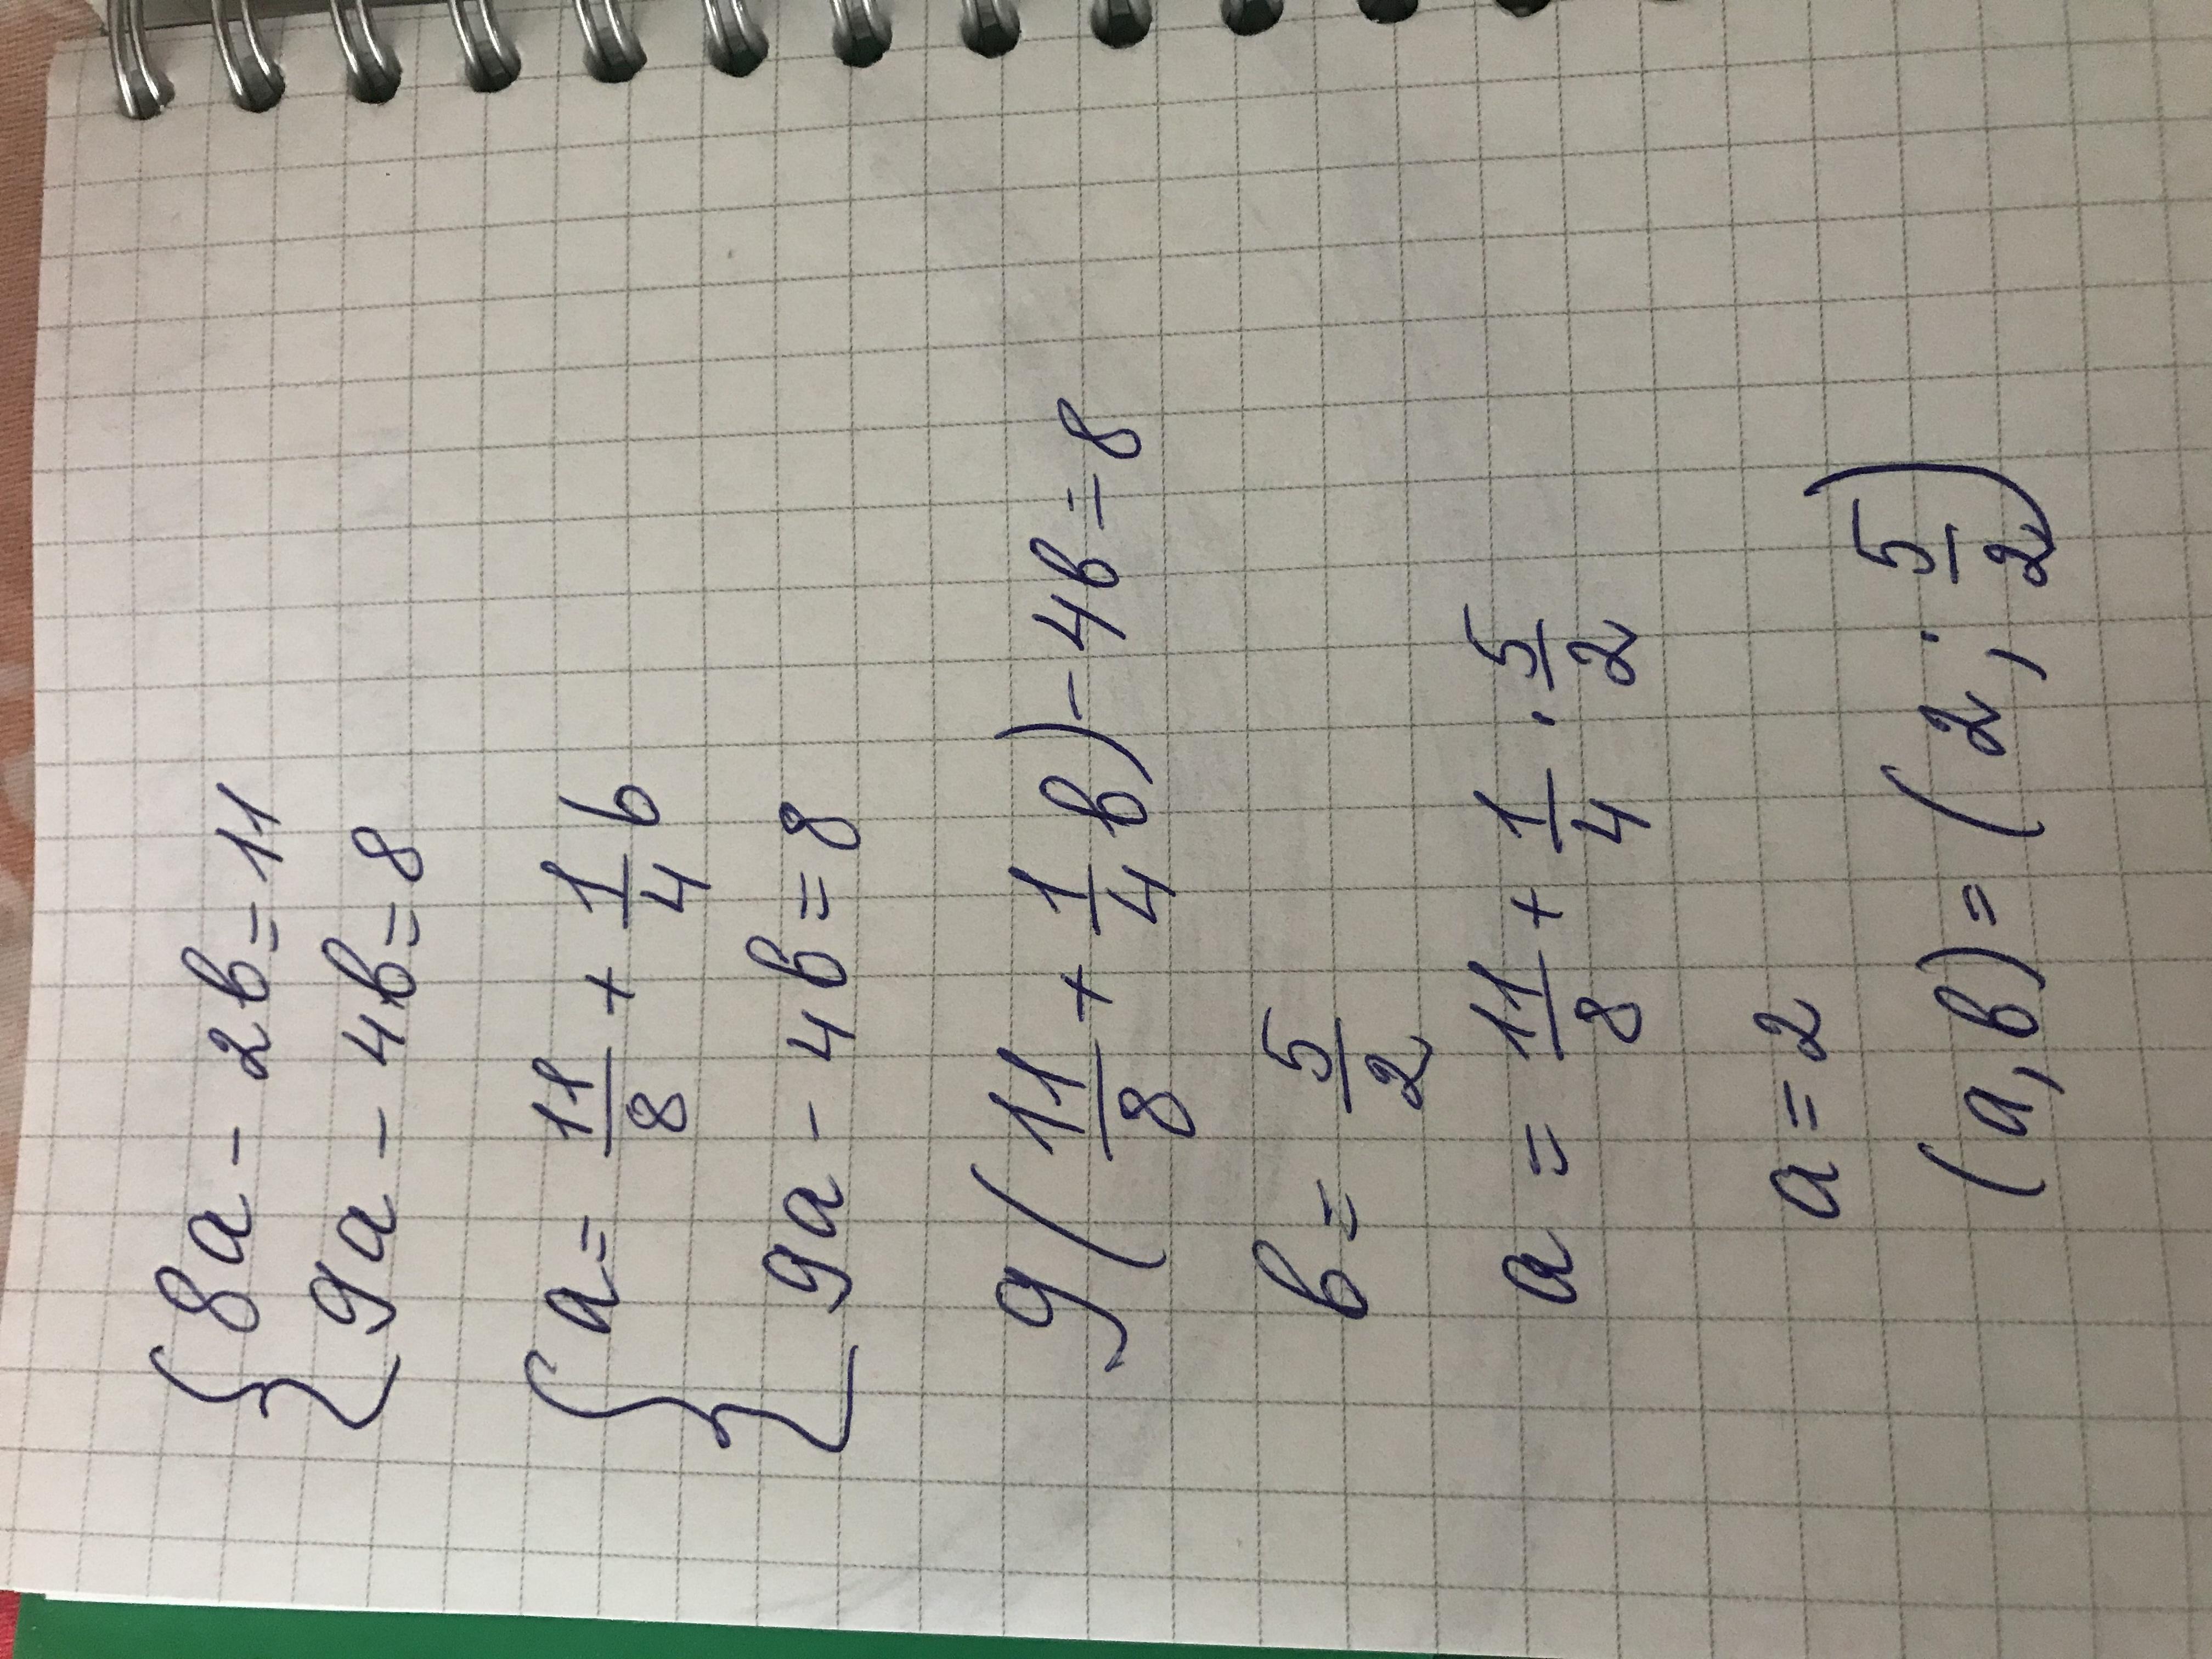 {8a - 2b = 11
9a - 4b = 8
{a = 11/8 + 1/4 b
9a - 4b = 8
9(11/8 + 1/4 b) - 4b = 8
b = 5/2
a = 11/8 + 1/4 · 5/2
a = 2
(a, b) = (2; 5/2)